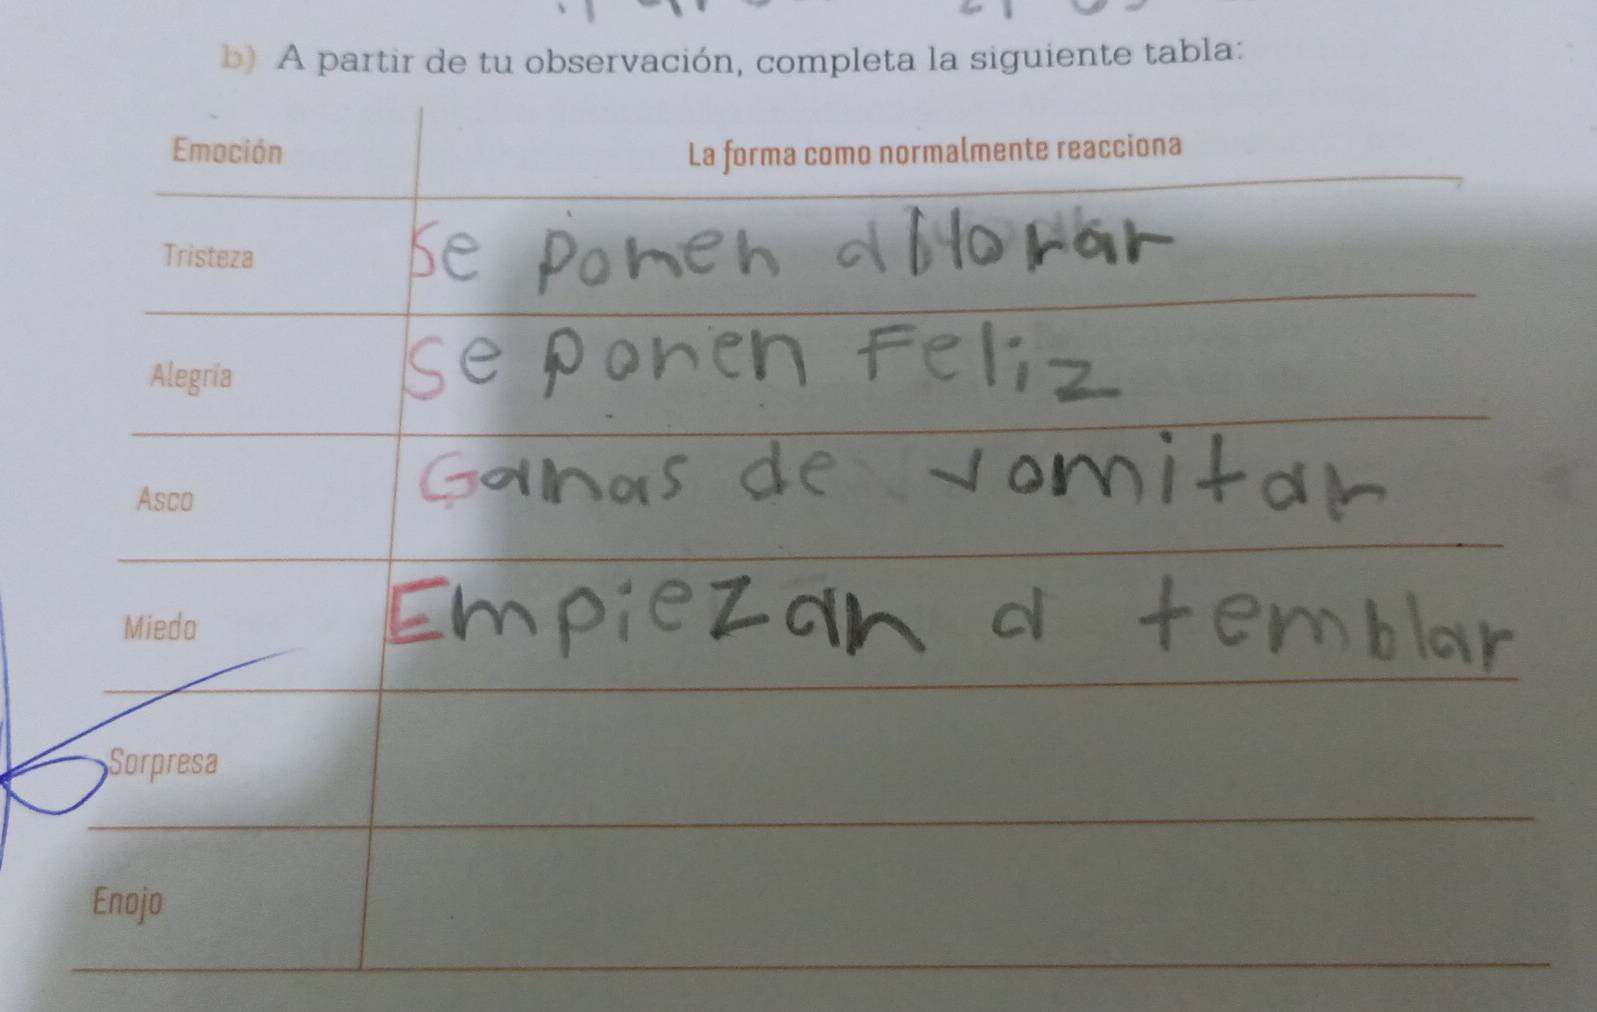 b) A partir de tu observación, completa la siguiente tabla:
Emoción La forma como normalmente reacciona
Tristeza Se ponen a llorar
Alegría Se ponen Feliz
Asco Ganas de vomitar
Miedo Empiezan a temblar
Sorpresa
Enojo